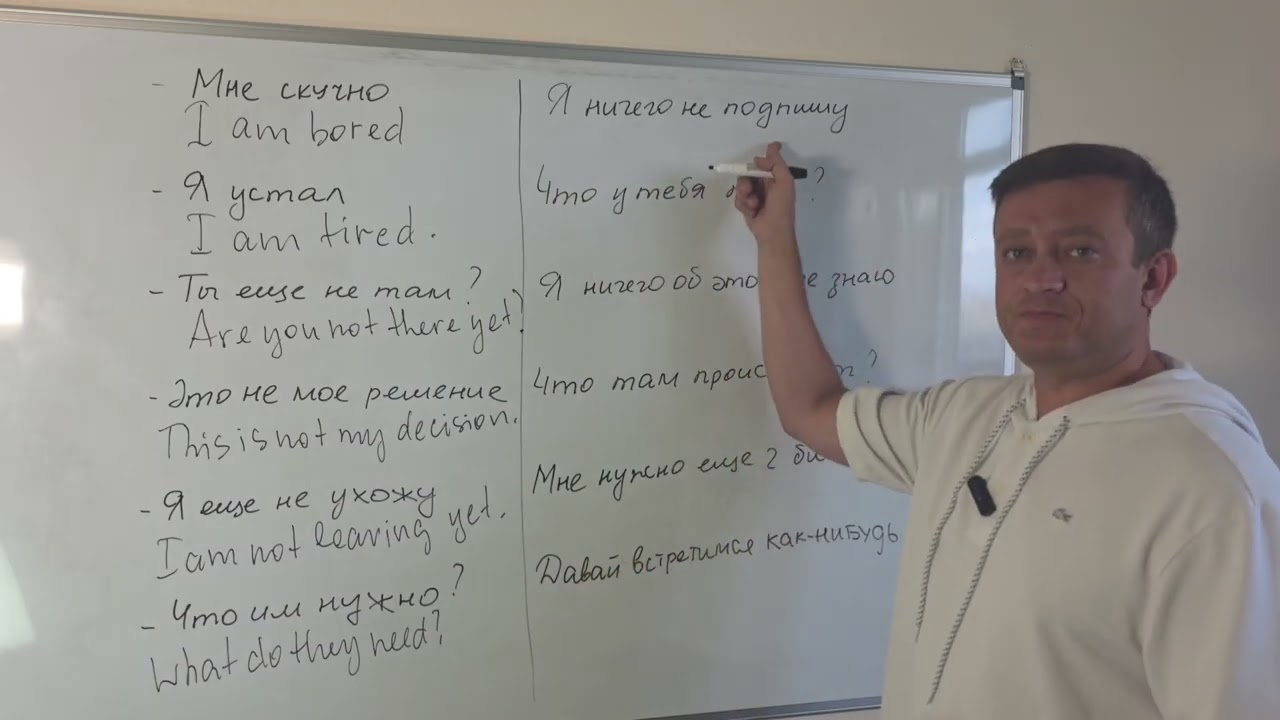 - Мне скучно
I am bored
- Я устал
I am tired.
- Ты еще не там?
Are you not there yet?
- Это не мое решение
This is not my decision.
- Я еще не ухожу
I am not leaving yet.
- Что им нужно?
What do they need?
Я ничего не подпишу
Что у тебя ?
Я ничего об знаю
Что там ?
Мне нужно еще 2
Давай встретимся как-нибудь